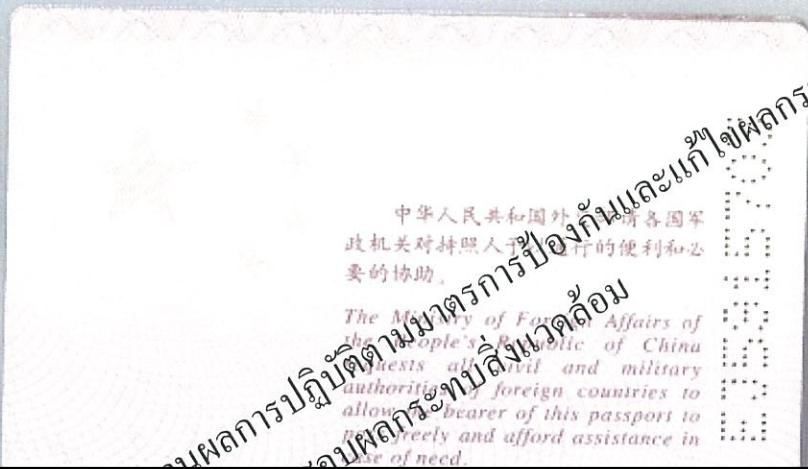 中华人民共和国外交部请各国军
政机关对持照人予以通行的便利和必
要的协助。
The Ministry of Foreign Affairs of
the People's Republic of China
requests all civil and military
authorities of foreign countries to
allow the bearer of this passport to
pass freely and afford assistance in
case of need.
ผลการปฏิบัติตามมาตรการป้องกันและแก้ไขผลกระ
ผลกระทบสิ่งแวดล้อม